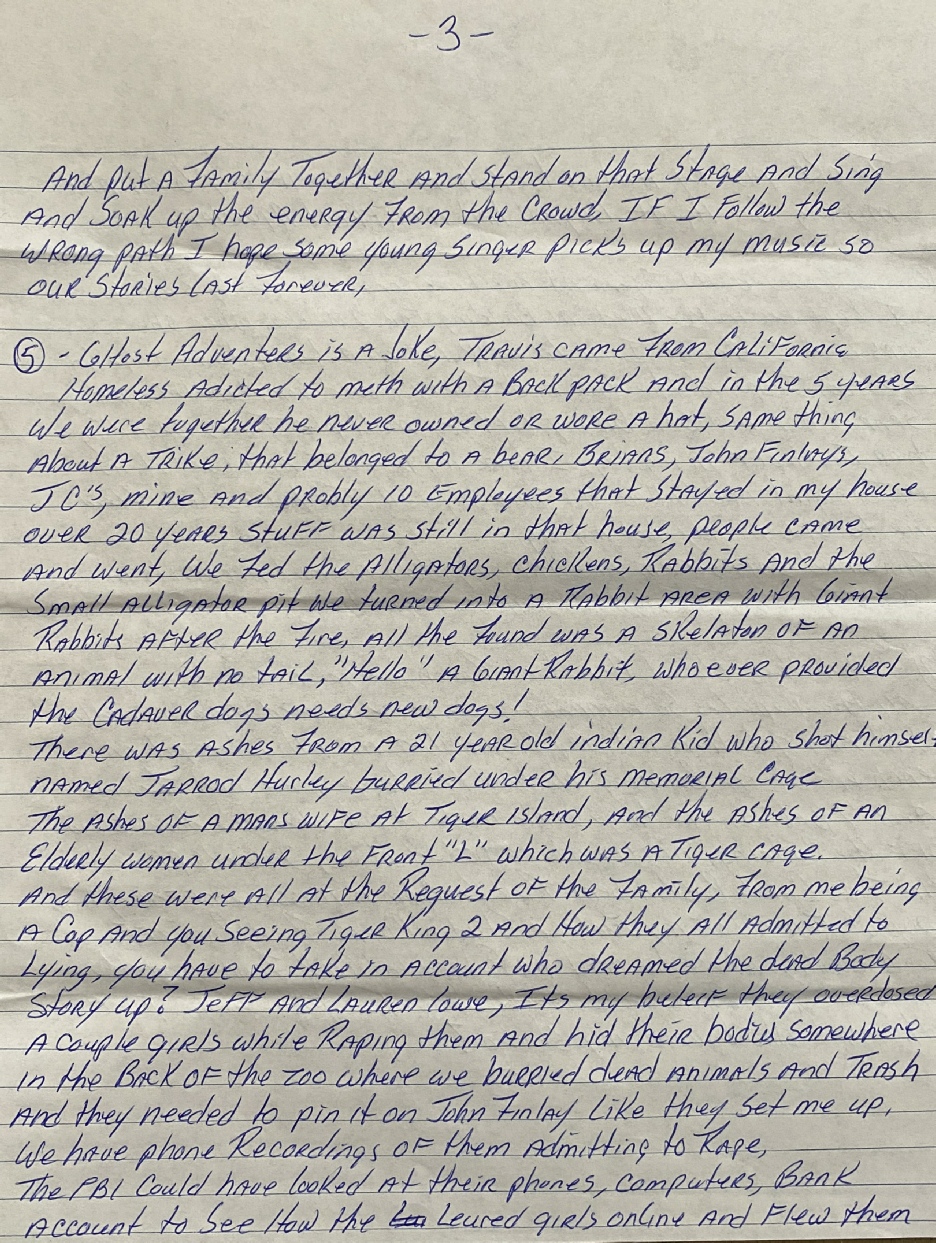 -3-
And put A Family Together And Stand on that Stage And Sing
And SOAK up the energy From the Crowd, IF I Follow the
WRONG path I hope Some young Singer Picks up my music so
OUR Stories LAST Forever,
⑤ - GHost Adventers is A Joke, TRAVIS CAME From CALIFORNIA
Homeless Adicted to meth with A BACK PACK And in the 5 years
We were together he never owned OR wore A hat, SAME thing
About A TRIKE, that belonged to A bear, BRIANS, John Finlays,
JC'S, mine And probly 10 Employees that Stayed in my house
over 20 years STUFF WAS Still in that house, people came
And went, We Fed the Alligators, chickens, Rabbits And the
Small Alligator pit We turned into A Rabbit AREA with Giant
Rabbits AFter the Fire, All the Found was A SKelaton OF AN
ANIMAL with no tail, "Hello" A Giant Rabbit, who ever provided
the CADAVER dogs needs new dogs!
There WAS AShes From A 21 year old indian Kid who Shot himself
NAMED JARROD Hurley burried under his MEMORIAL CAge
The AShes OF A MANS wiFe At Tiger ISland, And the AShes OF AN
Elderly women under the Front "L" which WAS A Tiger CAge.
And these were All At the Request OF the FAMily, From me being
A Cop And you Seeing Tiger King 2 And How they All Admitted to
Lying, you have to take in Account who dreamed the dead Body
Story up? JeFF And LAUren lowe, Its my beleif they overdosed
A couple girls while RAping them And hid their bodys Somewhere
in the BACK OF the ZOO where we burried dead ANIMALS And TRASH
And they needed to pin it on John Finlay Like they Set me up,
We have phone Recordings OF them Admitting to Rape,
The FBI Could have looked At their phones, Computers, BANK
Account to See How the Leured girls online And Flew them